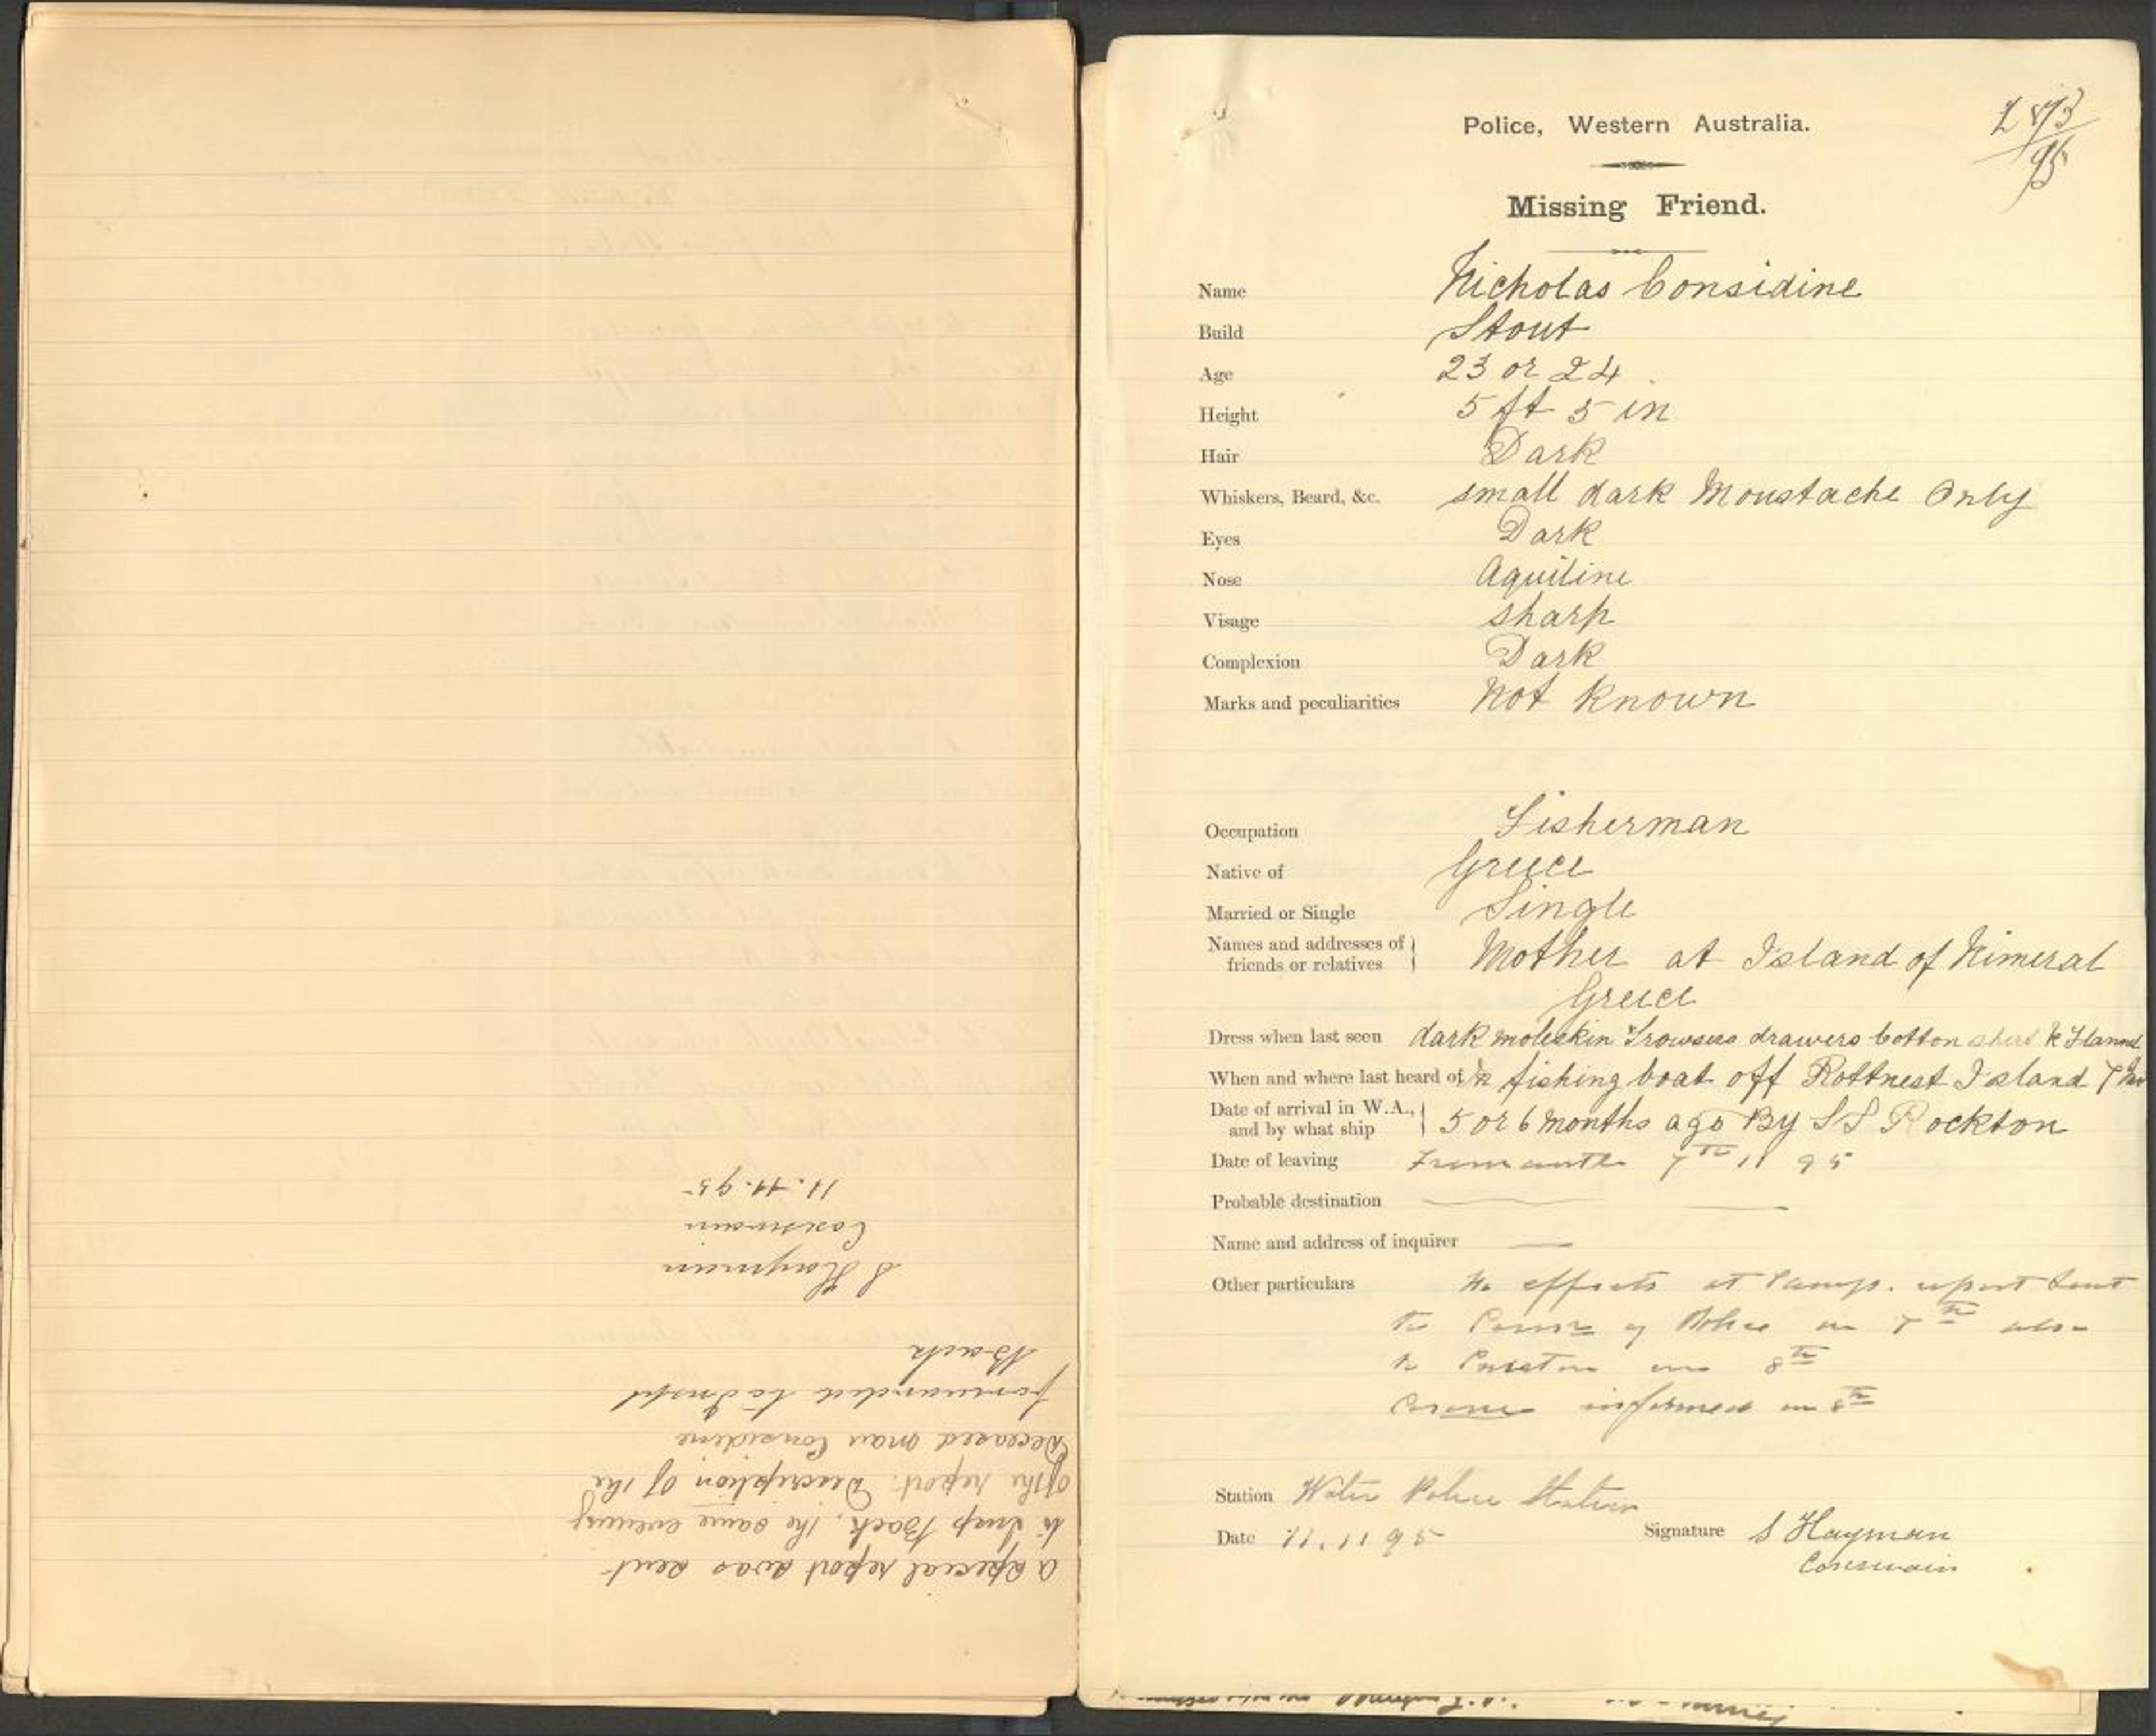 a special report was sent
to Insp Back, the same evening
of the report. Description of the
Deceased man Considine
forwarded to Inspt
Back
S Hayman
Coxswain
11.11.95
Police, Western Australia.
Missing Friend.
Name Nicholas Considine
Build Stout
Age 23 or 24
Height 5 ft 5 in
Hair Dark
Whiskers, Beard, &c. small dark Moustache Only
Eyes Dark
Nose Aquiline
Visage sharp
Complexion Dark
Marks and peculiarities Not Known
Occupation Fisherman
Native of Greece
Married or Single Single
Names and addresses of
friends or relatives Mother at Island of Nimeral
Greece
Dress when last seen dark moleskin Trowsers drawers Cotton shirt & Flannel
When and where last heard of In fishing boat off Rottnest Island 7
Date of arrival in W.A.,
and by what ship 5 or 6 months ago By S S Rockton
Date of leaving Fremantle 7th 11 95
Probable destination
Name and address of inquirer
Other particulars No effects at Camp. report sent
to Commr of Police on 7th also
to on 8th
Coroner informed on 8th
Station Water Police Station
Date 11.11 95 Signature S Hayman
Coxswain